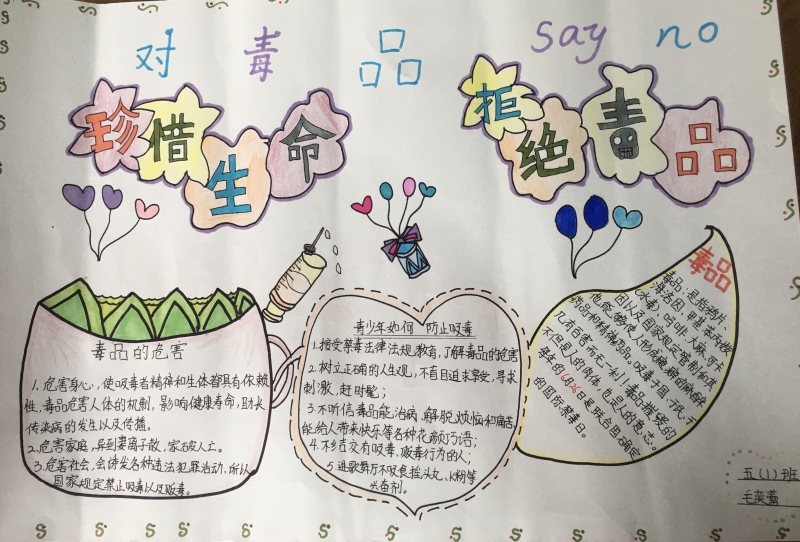 对毒品 say no
珍惜生命
拒绝毒品
毒品的危害
1.危害身心,使吸毒者精神和生体都具有依赖
性,毒品危害人体的机制,影响健康寿命,助长
传染病的发生以及传播。
2.危害家庭,弄到妻离子散,家破人亡。
3.危害社会,会诱发各种违法犯罪活动,所以
国家规定禁止吸毒以及贩毒。
青少年如何防止吸毒
1.接受禁毒法律法规教育,了解毒品的危害
2.树立正确的人生观,不盲目追求享受,寻求
刺激,赶时髦;
3.不听信毒品能治病,解脱烦恼和痛苦
能给人带来快乐等各种花言巧语;
4.不结交有吸毒、贩毒行为的人;
5.进歌舞厅不吸食摇头丸、K粉等
兴奋剂。
毒品
毒品:是指鸦片、
海洛因、甲基苯丙胺
(冰毒)、吗啡、大麻、可卡
因以及国家规定管制的其
他能够使人形成瘾癖的麻醉
药品和精神药品。吸毒于国、于民、于
己有百害而无一利!毒品摧毁的
不但是人的肉体,也是人的意志。
每年的6月26日是联合国确定
的国际禁毒日。
五(1)班